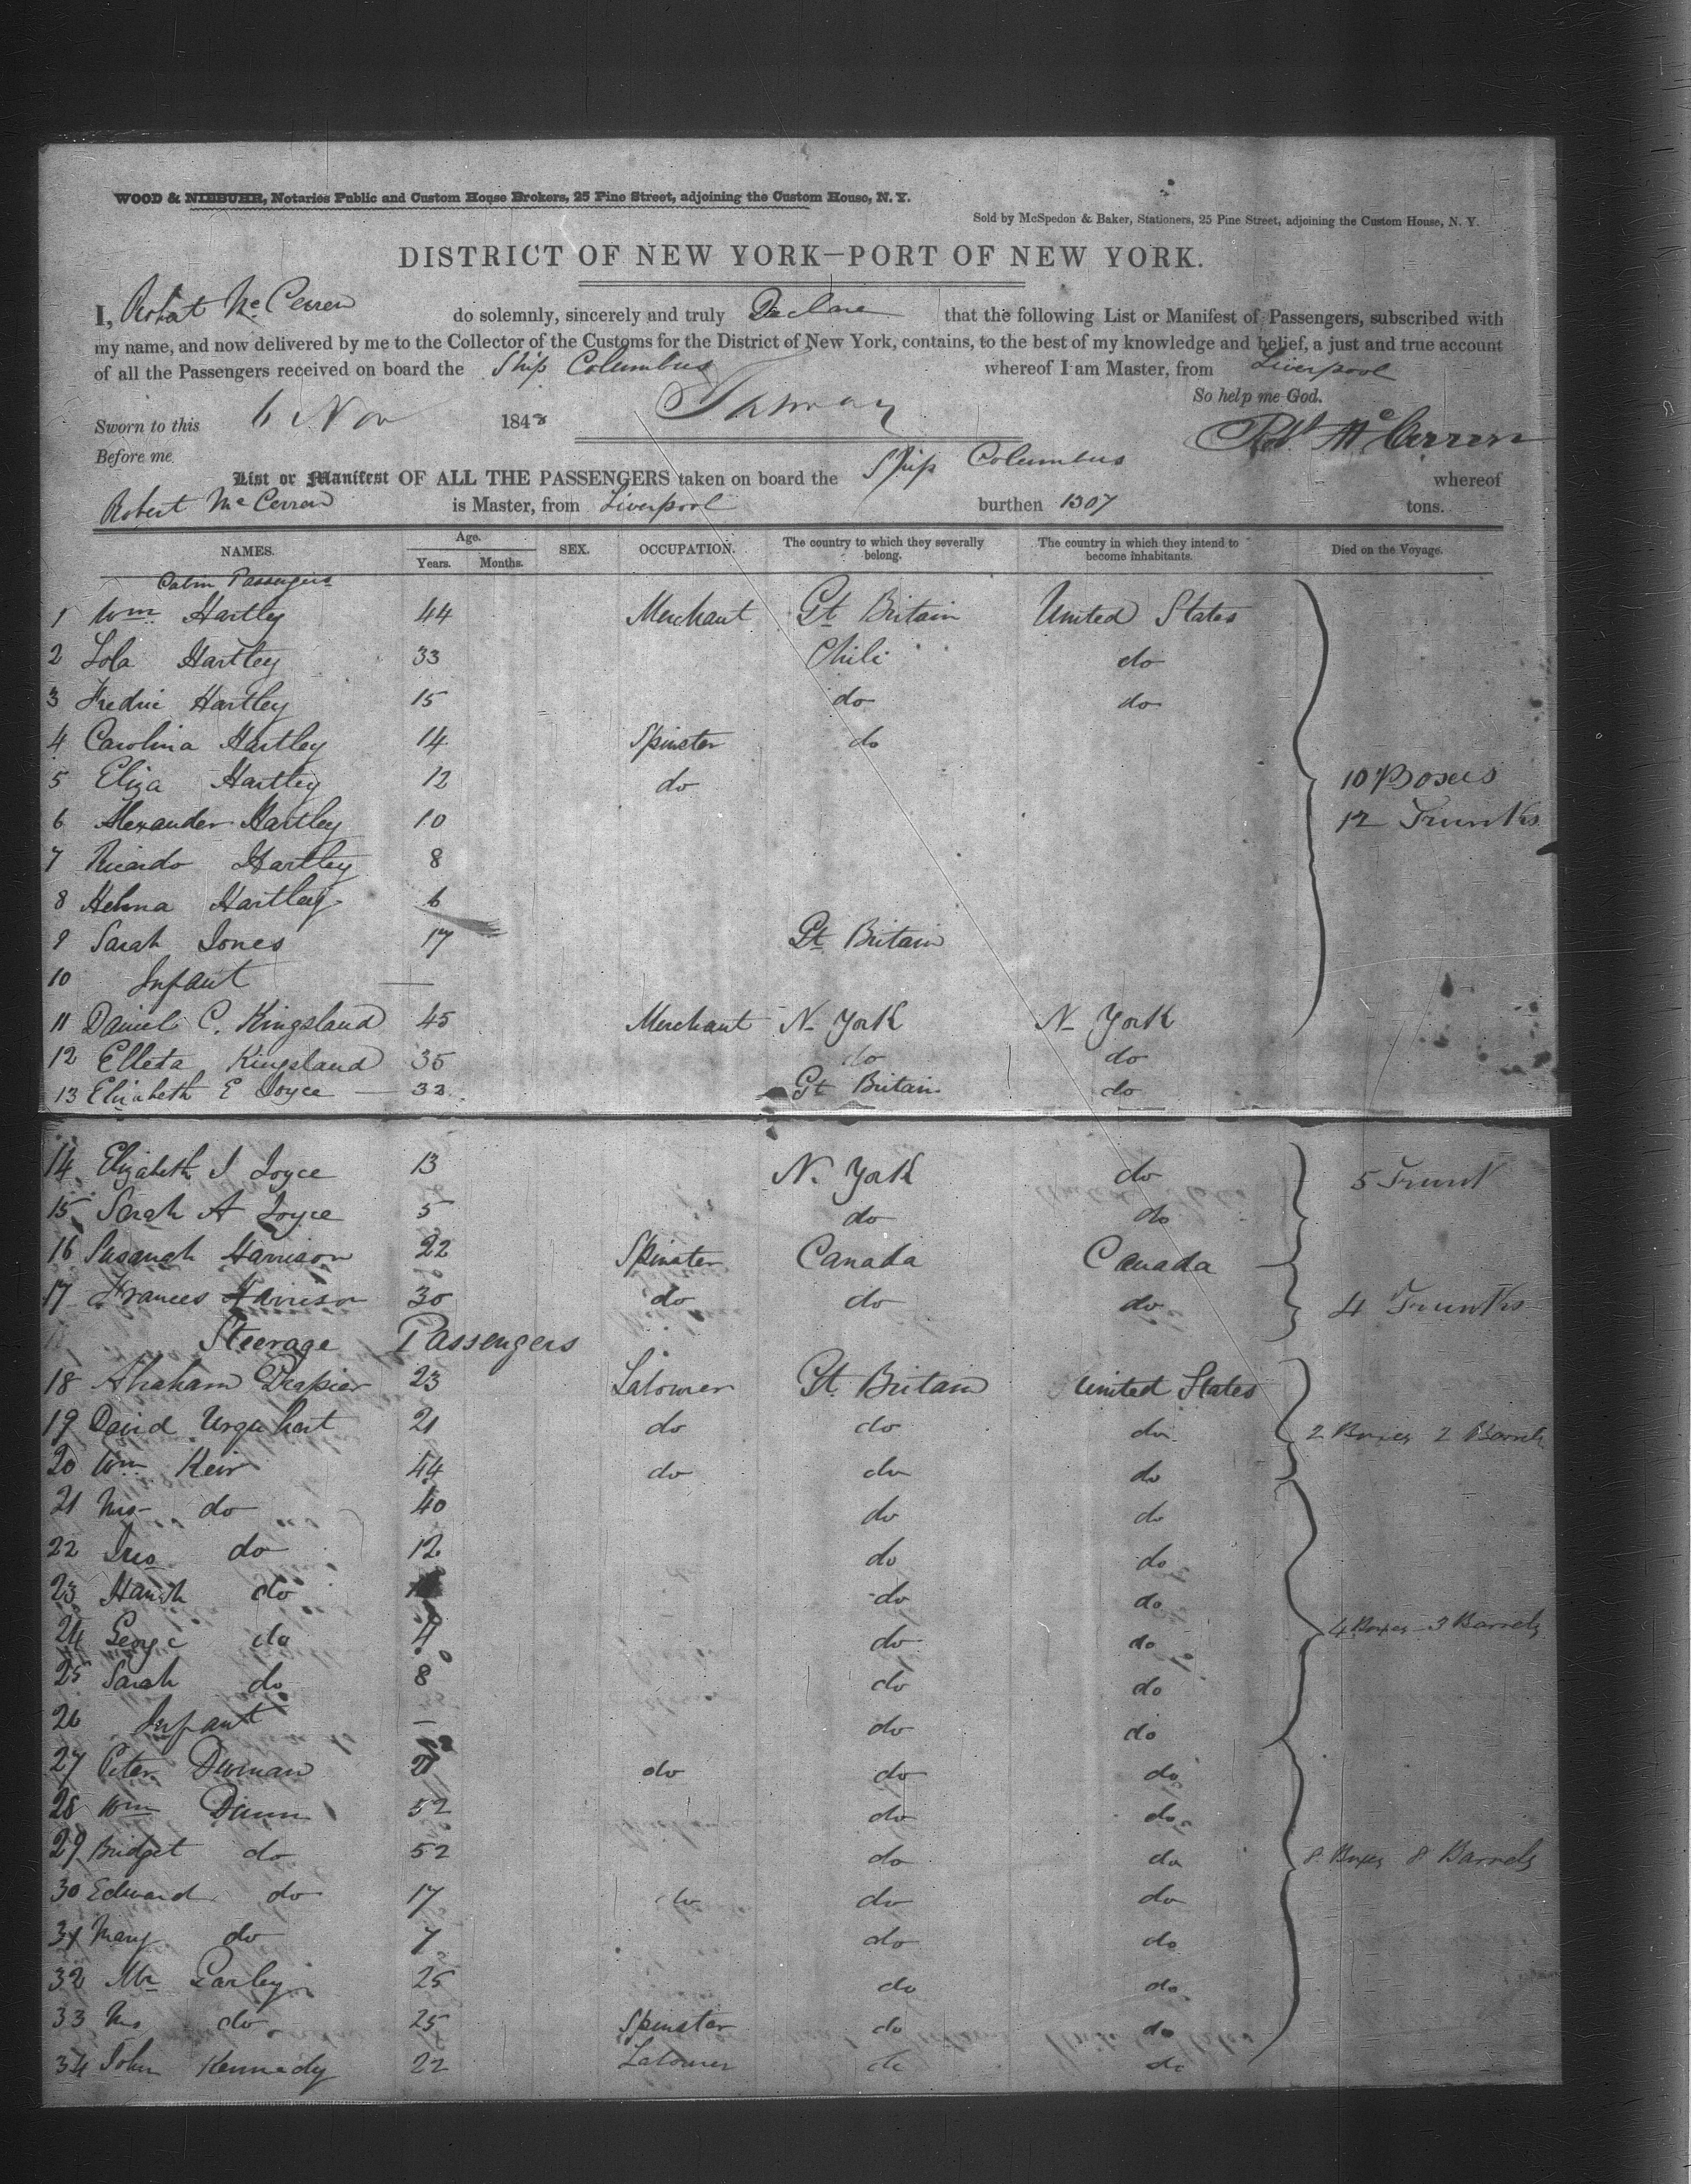 WOOD & NIEBUHR, Notaries Public and Custom House Brokers, 25 Pine Street, adjoining the Custom House, N. Y.
Sold by McSpedon & Baker, Stationers, 25 Pine Street, adjoining the Custom House, N. Y.
DISTRICT OF NEW YORK—PORT OF NEW YORK.
I, Robert McCerren do solemnly, sincerely and truly Declare that the following List or Manifest of Passengers, subscribed with
my name, and now delivered by me to the Collector of the Customs for the District of New York, contains, to the best of my knowledge and belief, a just and true account
of all the Passengers received on board the Ship Columbus whereof I am Master, from Liverpool
So help me God.
Sworn to this 6 Nov 1848
Robt McCerren
Before me
List or Manifest OF ALL THE PASSENGERS taken on board the Ship Columbus whereof
Robert McCerren is Master, from Liverpool burthen 1307 tons.
NAMES. Age. Years. Months. SEX. OCCUPATION. The country to which they severally belong. The country in which they intend to become inhabitants. Died on the Voyage.
Cabin Passengers
1 Wm Hartley 44 Merchant Gt Britain United States
2 Lola Hartley 33 Chili do
3 Fredric Hartley 15 do do
4 Carolina Hartley 14 Spinster do
5 Eliza Hartley 12 do 10 Boxes
6 Alexander Hartley 10 12 Trunks
7 Ricardo Hartley 8
8 Helma Hartley 6
9 Sarah Jones 17 Gt Britain
10 Infant —
11 Daniel C. Kingsland 45 Merchant N. York N. York
12 Elleta Kingsland 35 do do
13 Elizabeth E Joyce — 33 Gt Britain do
14 Elizabeth J Joyce 13 N. York do 5 Trunk
15 Sarah A Joyce 5 do do
16 Susanah Harrison 22 Spinster Canada Canada
17 Frances Harrison 30 do do do 4 Trunks
Steerage Passengers
18 Abraham 23 Labourer Gt Britain United States
19 David Urquhart 21 do do do 2 Boxes 2 Barrels
20 Wm Keir 44 do do do
21 Mrs do 40 do do
22 Jno do 12 do do
23 Hanah do do do
24 George do do do 4 Boxes - 3 Barrels
25 Sarah do 8 do do
26 Infant — do do
27 Peter do do do
28 Wm Dunn 52 do do
29 Bridget do 52 do do 8 Boxes 8 Barrels
30 Edward do 17 do do do
31 Mary do 7 do do
32 Mr Earley 25 do do
33 Mrs do 25 Spinster do do
34 John Kennedy 22 Labourer do do